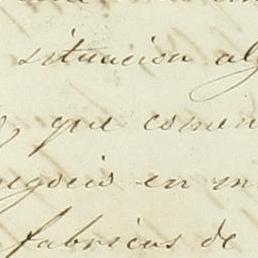 situacion alg
que comen
negocio en m
fabricas de